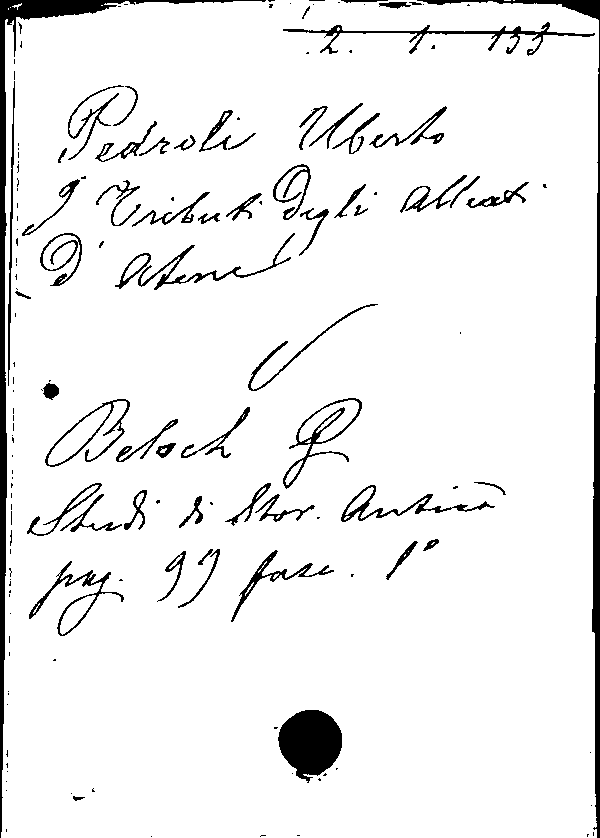 2. 1. 133
Pedroli Uberto
I Tributi degli alleati
D'Atene
Beloch G
Studi di Stor. Antica
pag. 99 fasc. 1°